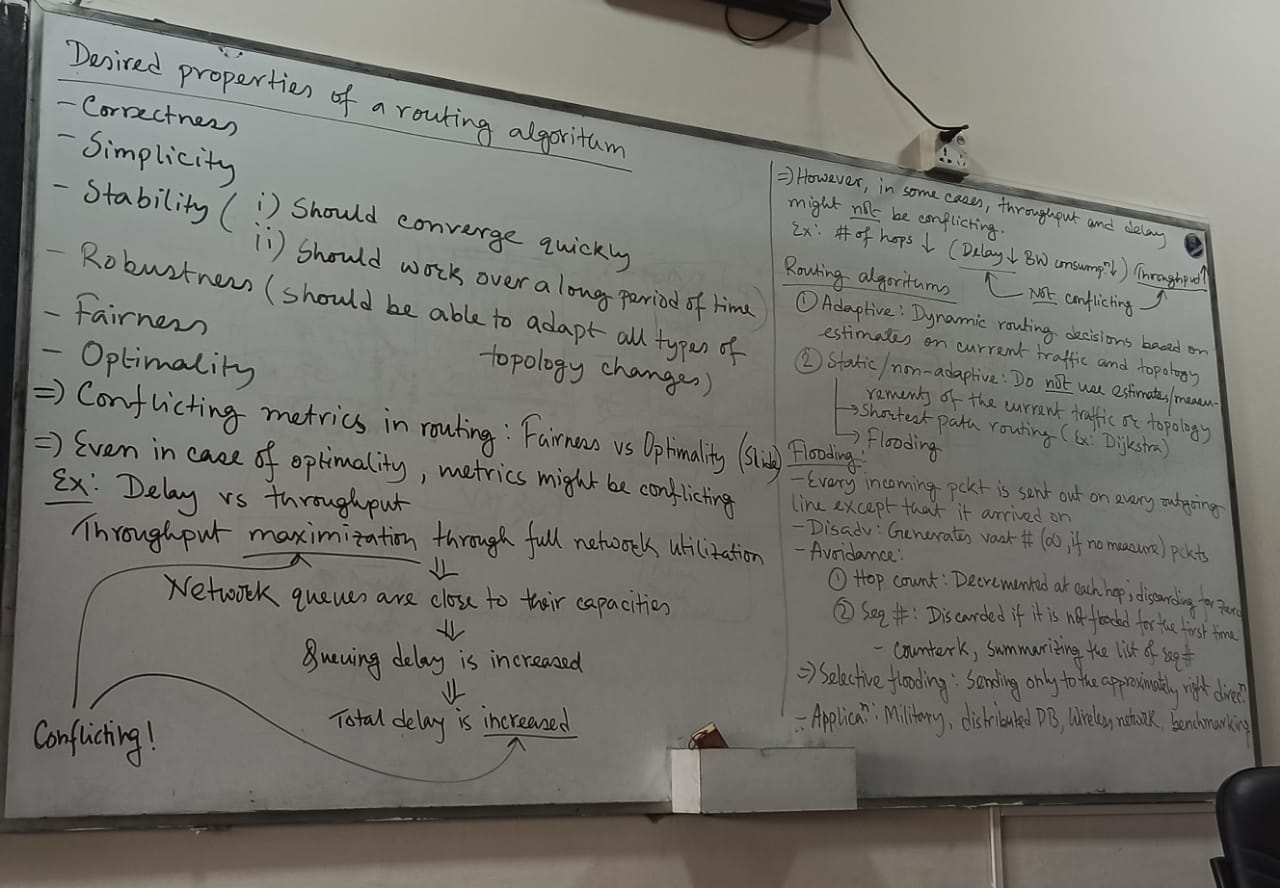 Desired properties of a routing algoritum
- Correctness
- Simplicity
- Stability ( i) Should converge quickly
ii) Should work over a long period of time)
- Robustness (should be able to adapt all types of
topology changes)
- Fairness
- Optimality
=> Conflicting metrics in routing : Fairness vs Optimality (Slide)
=> Even in case of optimality, metrics might be conflicting
Ex: Delay vs throughput
Throughput maximization through full network utilization
⇓
Network queues are close to their capacities
⇓
Queuing delay is increased
⇓
Total delay is increased
Conflicting!
=> However, in some cases, throughput and delay
might not be conflicting.
Ex: # of hops ↓ (Delay ↓ BW consumpⁿ↓) (Throughput↑
Not conflicting
Routing algoritums
① Adaptive: Dynamic routing decisions based on
estimates on current traffic and topology
② Static/non-adaptive: Do not use estimates/measu-
rements of the current traffic or topology
→ Shortest path routing (Ex: Dijkstra)
→ Flooding
Flooding:
- Every incoming pckt is sent out on every outgoing
line except that it arrived on
- Disadv: Generates vast # (∞, if no measure) pckts
- Avoidance:
① Hop count: Decremented at each hop; discarding for zero
② Seq #: Discarded if it is not flooded for the first time
- counter k, summarizing the list of seq #
=> Selective flooding: Sending only to the approximately right direcⁿ
- Applicaⁿ: Military, distributed DB, Wireless network, benchmarking